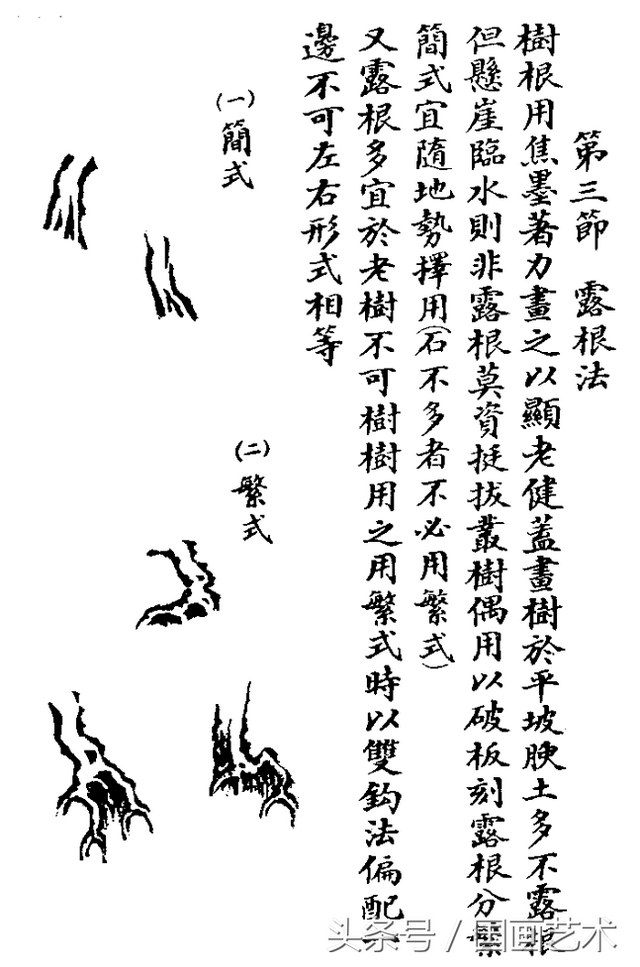 第三節　露根法
樹根用焦墨著力畫之以顯老健蓋畫樹於平坡腴土多不露根
但懸崖臨水則非露根莫資挺拔叢樹偶用以破板刻露根分繁
簡式宜隨地勢擇用(石不多者不必用繁式)
又露根多宜於老樹不可樹樹用之用繁式時以雙鈎法偏配一
邊不可左右形式相等
(一)簡式
(二)繁式
头条号 / 国画艺术